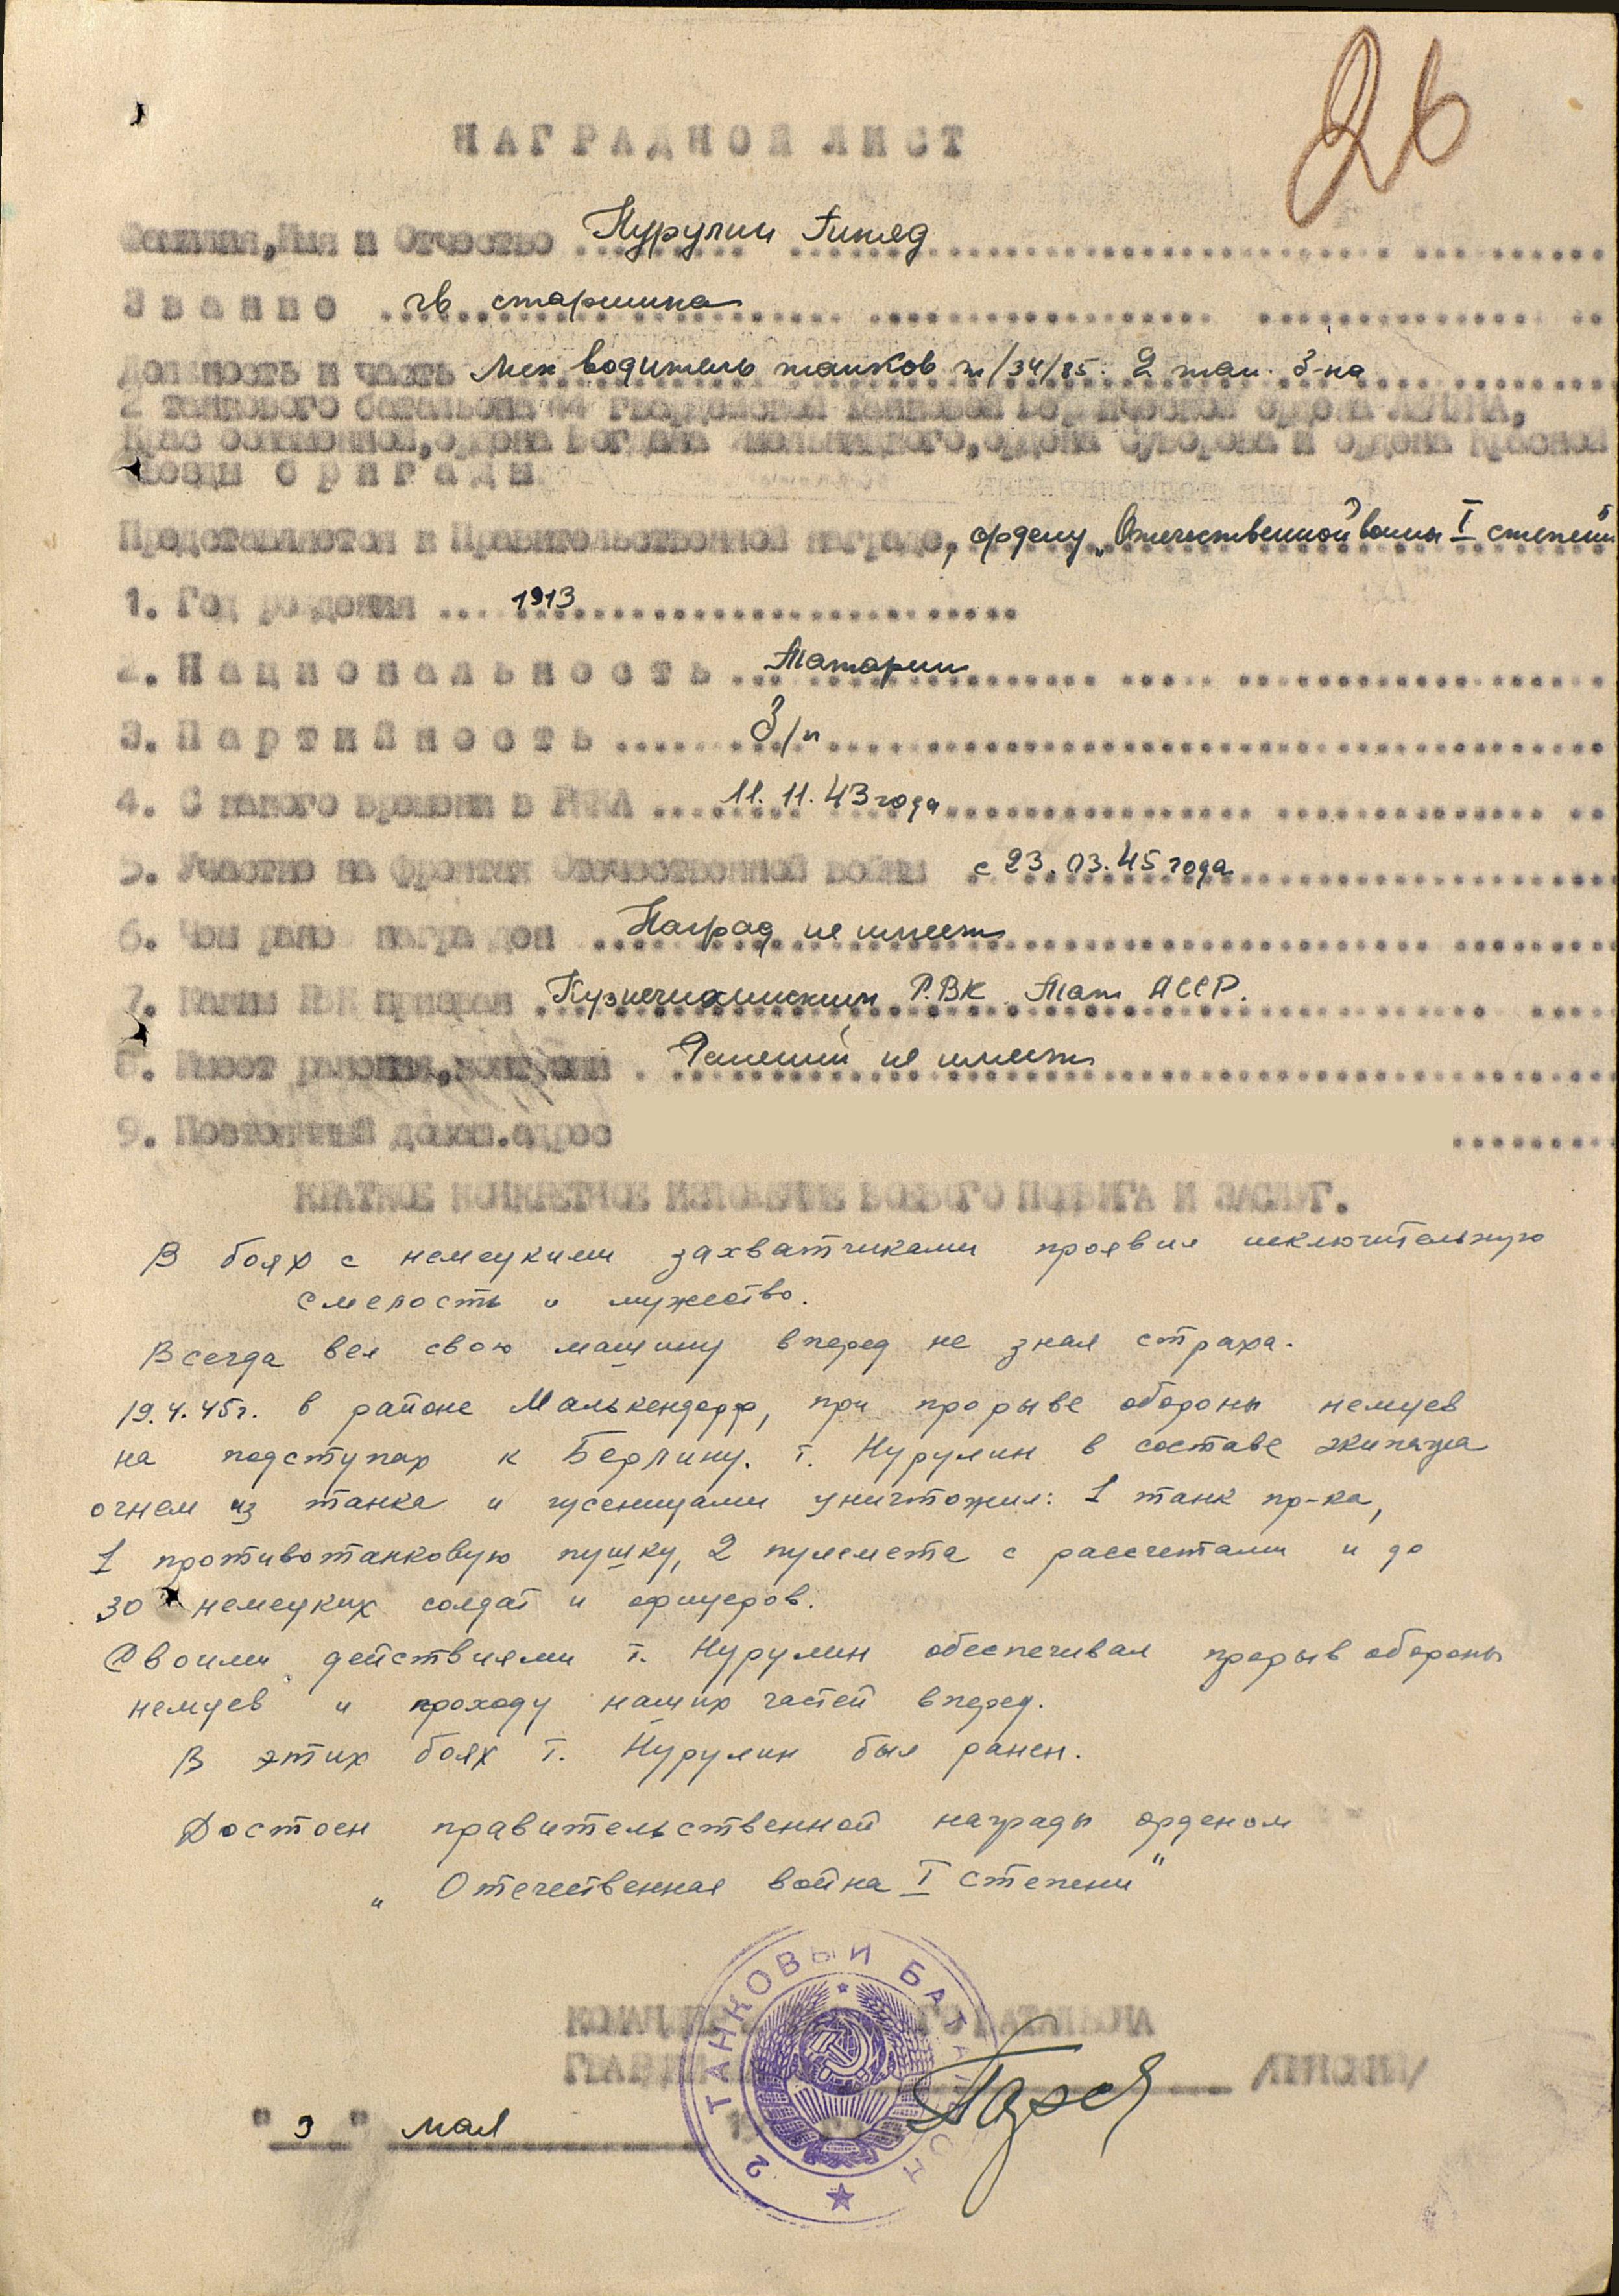 26
НАГРАДНОЙ ЛИСТ
Фамилия, Имя и Отчество Нурулин
Звание гв старшина
Должность и часть Мех водитель танков т/34/85. 2 тан. б-на
2 танкового батальона 44 гвардейской Танковой Бердической ордена ЛЕНИНА,
Краснознаменной, ордена Богдана Хмельницкого, ордена Суворова и ордена Красной
Звезды бригады
Представляется к Правительственной награде, ордену „Отечественной войны I степени"
1. Год рождения 1913
2. Национальность Татарин
3. Партийность б/п
4. С какого времени в РККА 11.11.43 года
5. Участие на фронтах Отечественной войны с 23.03.45 года
6. Чем ранее награжден Наград не имеет
7. Каким РВК призван Р.ВК Тат АССР.
8. Имеет ранения, контузии Ранений не имеет
9. Постоянный домаш. адрес
КРАТКОЕ КОНКРЕТНОЕ ИЗЛОЖЕНИЕ БОЕВОГО ПОДВИГА И ЗАСЛУГ.
В боях с немецкими захватчиками проявил исключительную
смелость и мужество.
Всегда вел свою машину вперед не зная страха.
19.4.45г. в районе Малькендорф, при прорыве обороны немцев
на подступах к Берлину. т. Нурулин в составе экипажа
огнем из танка и гусеницами уничтожил: 1 танк пр-ка,
1 противотанковую пушку, 2 пулемета с рассчетами и до
30 немецких солдат и офицеров.
Своими действиями т. Нурулин обеспечивал прорыв обороны
немцев и проходу наших частей вперед.
В этих боях т. Нурулин был ранен.
Достоен правительственной награды орденом
„Отечественная война I степени"
2 ТАНКОВЫЙ БАТАЛ
КОМАНДИР ГО БАТАЛЬОНА
ГВАРДИИ
"3" мая